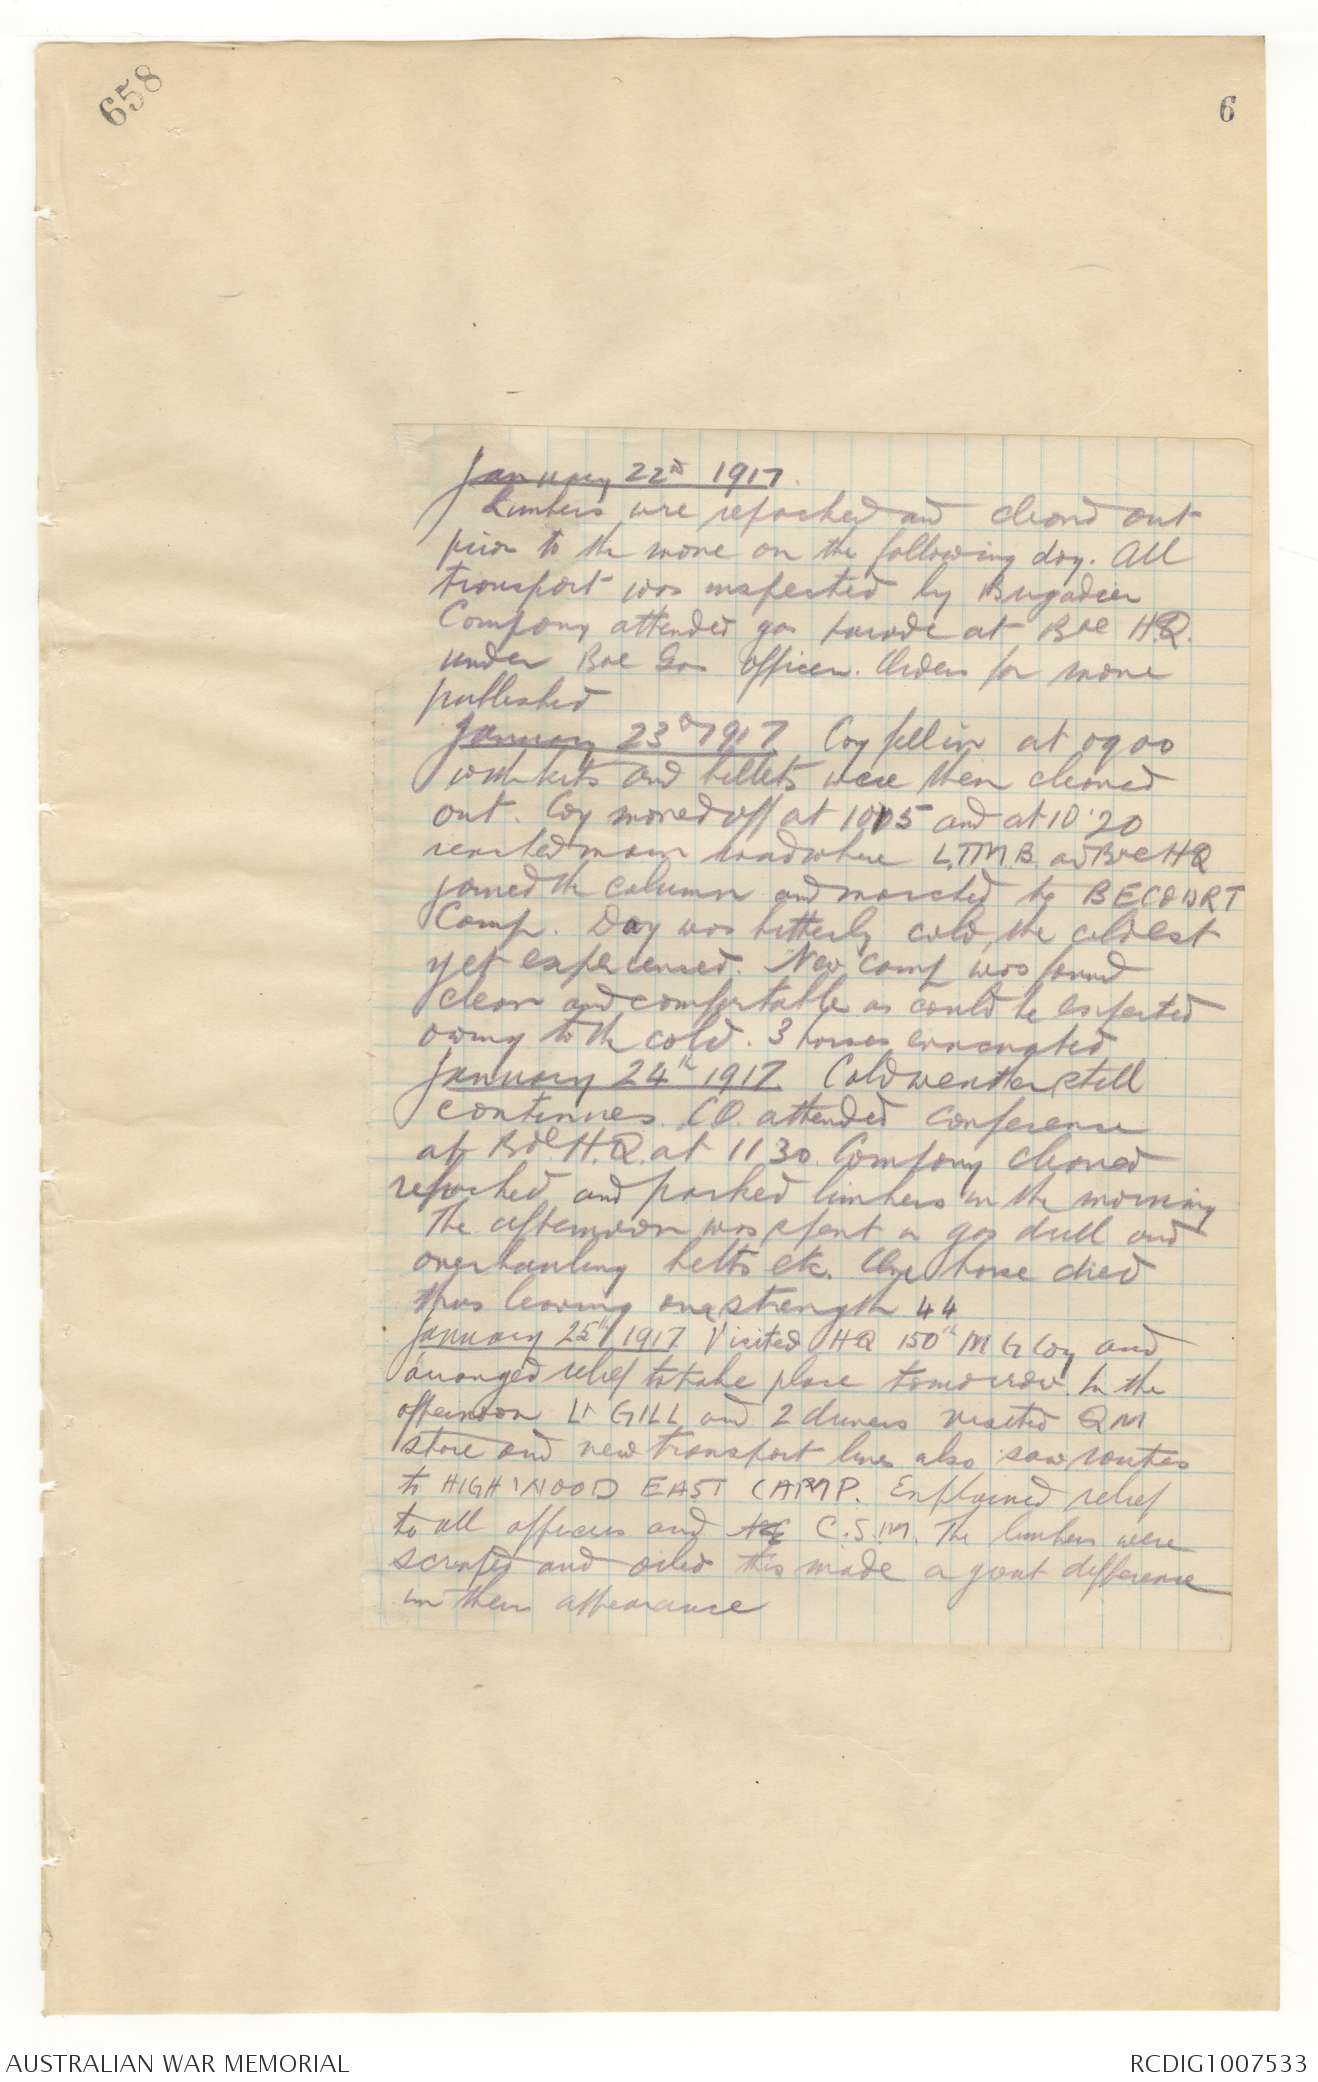 658
6
January 22nd 1917.
Limbers were repacked and cleand out
prior to the move on the following day. All
transport was inspected by Brigadier
Company attended gas parade at Bde HQ.
under Bde Gas Officer. Orders for move
published
January 23rd 1917 Coy fell in at 0900
with kits and billets were then cleaned
out. Coy moved off at 1015 and at 10.20
reached main road where L.T.M.B. and Bde HQ
joined the column and marched to BECOURT
Camp. Day was bitterly cold, the coldest
yet experienced. New camp was found
clean and comfortable as could be expected
owing to the cold. 3 horses evacuated
January 24th 1917. Cold weather still
continues. CO. attended conference
at Bde. H.Q. at 1130. Company cleaned
repacked and parked limbers in the morning
The afternoon was spent in gas drill and
overhauling belts etc. One horse died
thus leaving our strength 44
January 25th 1917 Visited HQ 150th M G Coy and
arranged relief to take place tomorrow. In the
afternoon Lt GILL and 2 drivers visited QM
store and new transport lines also saw routes
to HIGH WOOD EAST CAMP. Explained relief
to all officers and C.S.M. The limbers were
scraped and oiled this made a great difference
in their appearance
AUSTRALIAN WAR MEMORIAL
RCDIG1007533